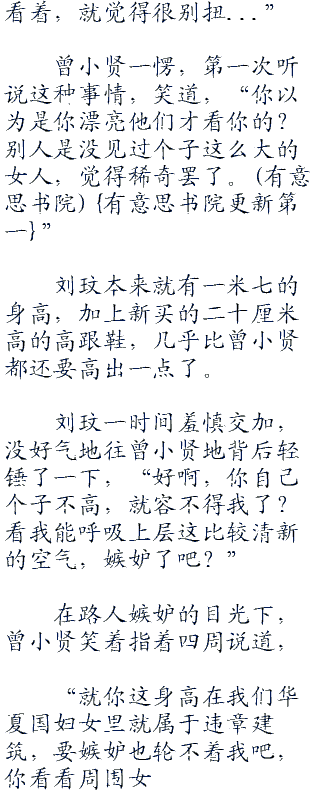 看着，就觉得很别扭...”
曾小贤一愣，第一次听
说这种事情，笑道，“你以
为是你漂亮他们才看你的？
别人是没见过个子这么大的
女人，觉得稀奇罢了。(有意
思书院) {有意思书院更新第
一}”
刘玟本来就有一米七的
身高，加上新买的二十厘米
高的高跟鞋，几乎比曾小贤
都还要高出一点了。
刘玟一时间羞慎交加，
没好气地往曾小贤地背后轻
锤了一下，“好啊，你自己
个子不高，就容不得我了？
看我能呼吸上层这比较清新
的空气，嫉妒了吧？”
在路人嫉妒的目光下，
曾小贤笑着指着四周说道，
“就你这身高在我们华
夏国妇女里就属于违章建
筑，要嫉妒也轮不着我吧，
你看看周围女